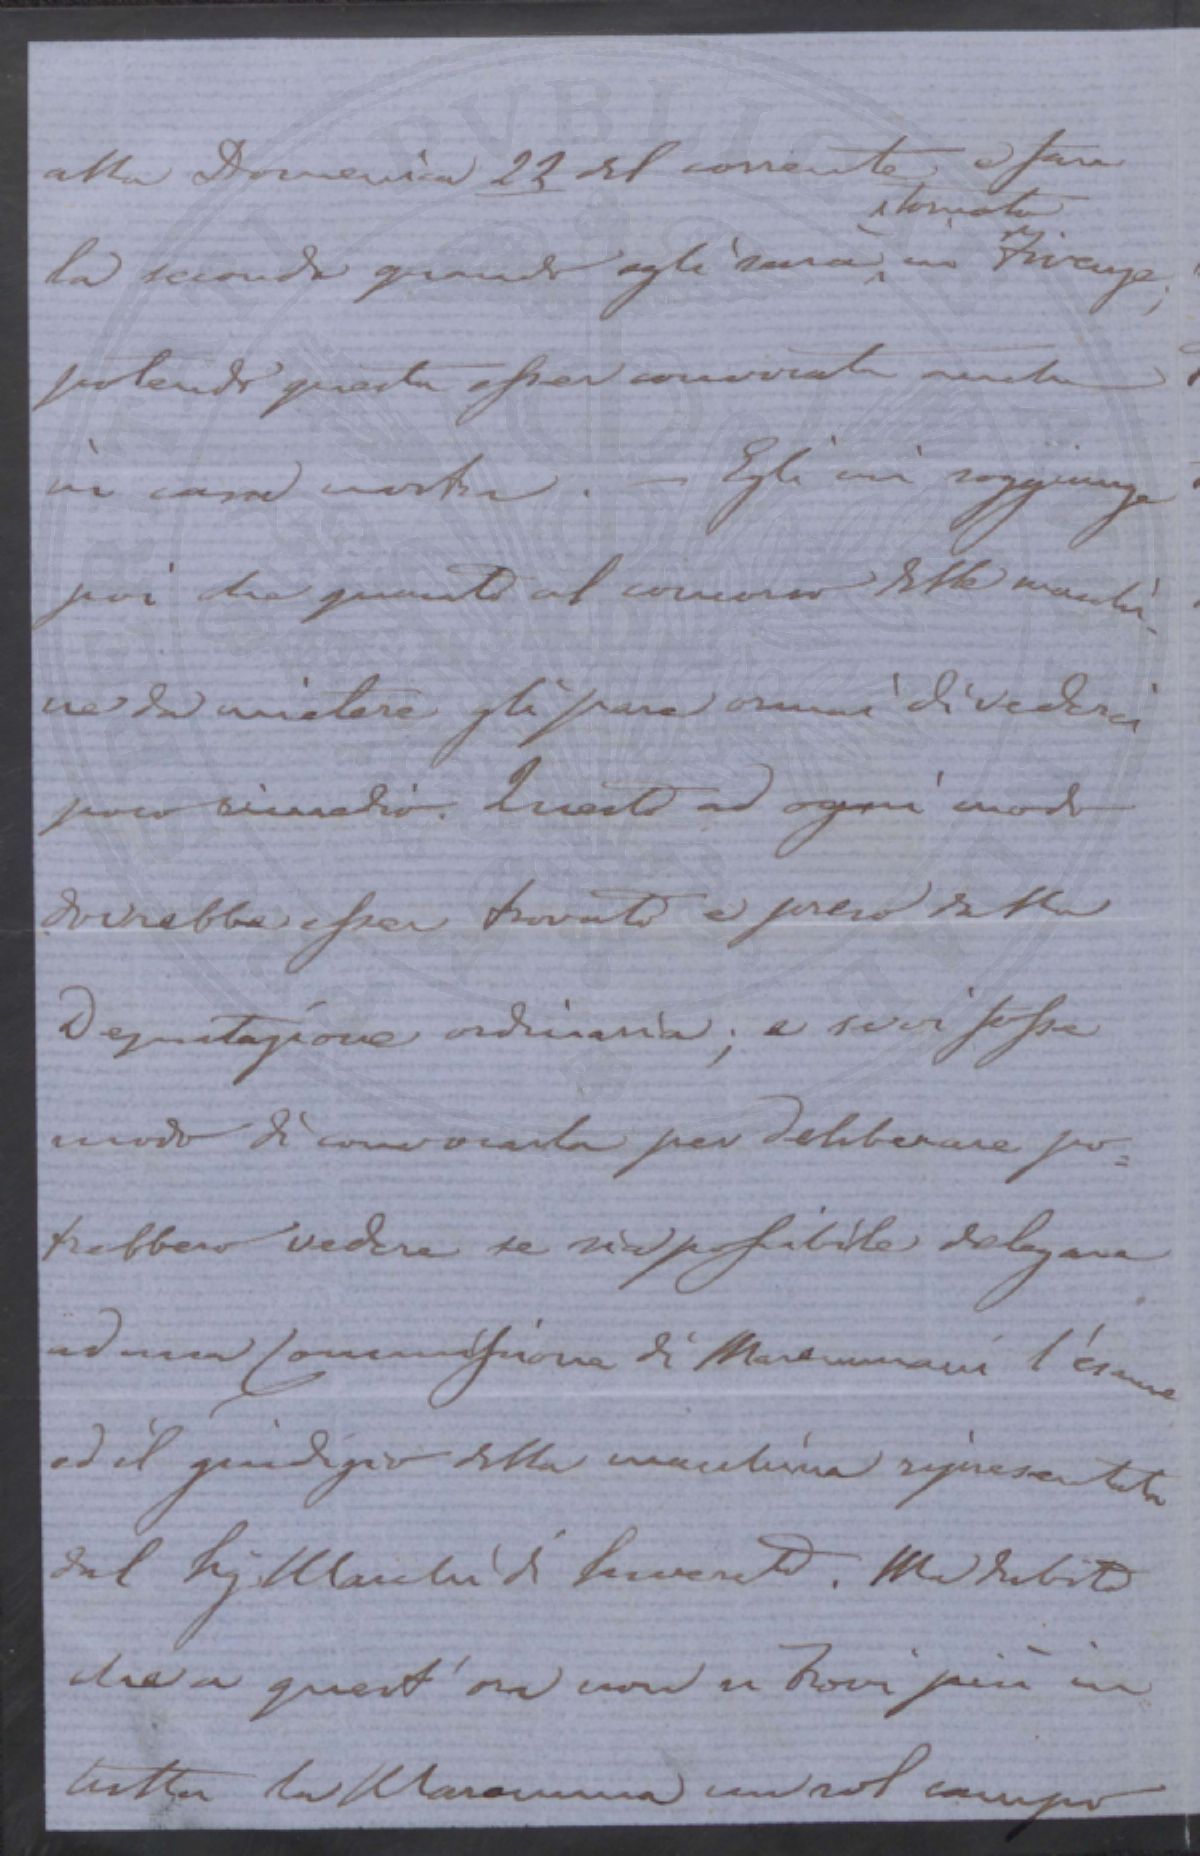 alla Domenica 22 del corrente, e fare
ritornato
la seconda quando egli sarà in Firenze;
potendo questa esser convocata anche
in casa nostra. — Egli mi soggiunge
poi che quanto al concorso delle macchi-
ne da mietere gli pare ormai di vederci
poco rimedio. Questo ad ogni modo
dovrebbe esser trovato e preso dalla
Deputazione ordinaria; e se vi fosse
modo di convocarla per deliberare po=
trebbero vedere se sia possibile delegare
ad una Commissione di Maremmani l'esame
ed il giudizio della macchina ripresentata
dal Sig Marchi di Suvereto. Ma dubito
che a quest'ora non si trovi più in
tutta la Maremma un sol campo
PVBLIC